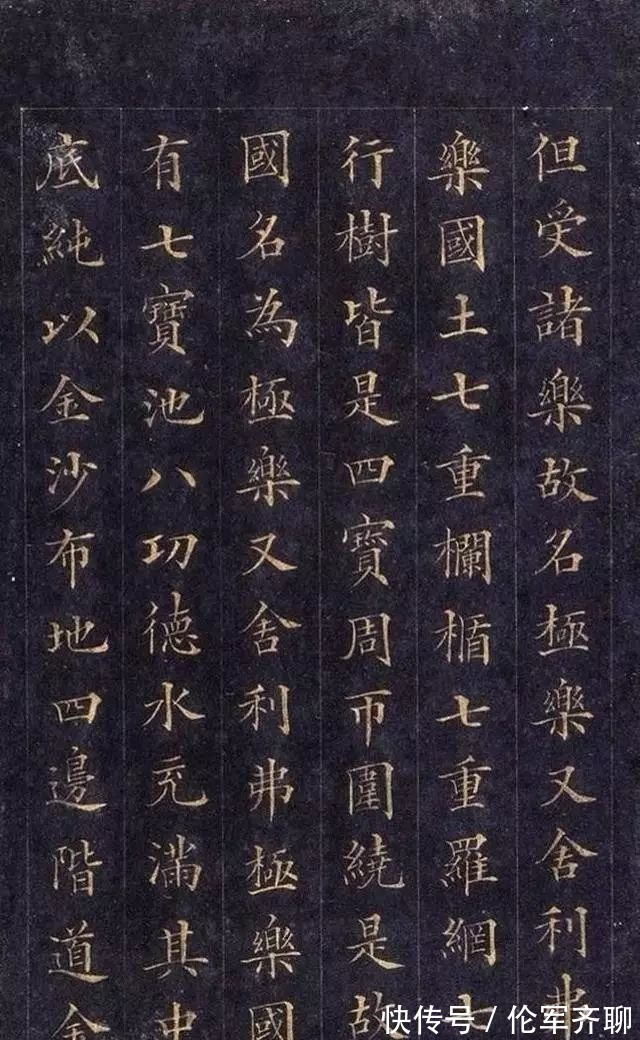 但受諸樂故名極樂又舍利弗
樂國土七重欄楯七重羅網七
行樹皆是四寶周帀圍繞是故
國名為極樂又舍利弗極樂國
有七寶池八功德水充滿其中
底純以金沙布地四邊階道金
快传号 / 伦军齐聊